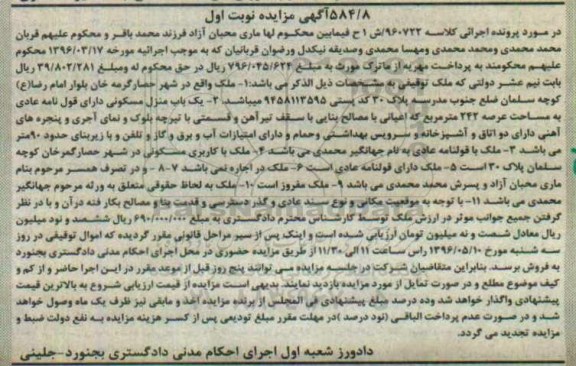 ۵۸۴/۸آگهی مزایده نوبت اول
در مورد پرونده اجرائی کلاسه ۹۶۰۷۲۲/ش ۱ ح فیمابین محکوم لها ماری محبان آزاد فرزند محمد باقر و محکوم علیهم قربان
محمد محمدی ومحمد محمدی ومهسا محمدی وصدیقه نیکدل ورضوان قربانیان که به موجب اجرائیه مورخه ۱۳۹۶/۰۳/۱۷ محکوم
علیهم محکومند به پرداخت مهریه از ماترک مورث به مبلغ ۷۹۶/۰۴۵/۶۲۴ ریال در حق محکوم له ومبلغ ۳۹/۸۰۲/۲۸۱ ریال
بابت نیم عشر دولتی که ملک توقیفی به مشخصات ذیل الذکر می باشد:۱- ملک واقع در شهر حصارگرمه خان بلوار امام رضا(ع)
کوچه سلمان ضلع جنوب مدرسه پلاک ۳۰ کد پستی ۹۴۵۸۱۱۳۵۹۵ میباشد. ۲- یک باب منزل مسکونی دارای قول نامه عادی
به مساحت عرصه ۲۴۲ مترمربع که اعیانی با مصالح بنایی با سقف تیرآهن و قسمتی با تیرچه بلوک و نمای آجری و پنجره های
آهنی دارای دو اتاق و آشپزخانه و سرویس بهداشتی وحمام و دارای امتیازات آب و برق و گاز و تلفن و با زیربنای حدود ۹۰متر
می باشد ۳- ملک با قولنامه عادی به نام جهانگیر محمدی می باشد ۴- ملک با کاربری مسکونی در شهر حصارگمرخان کوچه
سلمان پلاک ۳۰ است ۵- ملک دارای قولنامه عادی است ۶- ملک در اجاره نمی باشد ۷-۸- و در تصرف همسر مرحوم بنام
ماری محبان آزاد و پسرش محمد محمدی می باشد ۹- ملک مفروز است ۱۰- ملک به لحاظ حقوقی متعلق به ورثه مرحوم جهانگیر
محمدی می باشد ۱۱- با توجه به موقعیت مکانی و نوع سند عادی و گذر دسترسی و قدمت بنا و مصالح بکار فته در آن و با در نظر
گرفتن جمیع جوانب موثر در ارزش ملک توسط کارشناس محترم دادگستری به مبلغ ۶۹۰/۰۰۰/۰۰۰ ریال ششصد و نود میلیون
ریال معادل شصت و نه میلیون تومان ارزیابی شده است و اینک پس از سیر مراحل قانونی مقرر گردیده که اموال توقیفی در روز
سه شنبه مورخ ۱۳۹۶/۰۵/۱۰ راس ساعت ۱۱ الی ۱۱/۳۰ از طریق مزایده حضوری در محل اجرای احکام مدنی دادگستری بجنورد
به فروش برسد. بنابراین متقاضیان شرکت در جلسه مزایده می توانند پنج روز قبل از موعد مقرر در این اجرا حاضر و از کم و
کیف موضوع مطلع و در صورت تمایل از مورد مزایده بازدید نمایند. بدیهی است مزایده از قیمت ارزیابی شروع به بالاترین قیمت
پیشنهادی واگذار خواهد شد وده درصد مبلغ پیشنهادی فی المجلس از برنده مزایده اخذ و مابقی نیز ظرف یک ماه وصول خواهد
شد و در صورت عدم پرداخت الباقی (نود درصد )در مهلت مقرر مبلغ تودیعی پس از کسر هزینه مزایده به نفع دولت ضبط و
مزایده تجدید می گردد.
دادورز شعبه اول اجرای احکام مدنی دادگستری بجنورد-جلینی